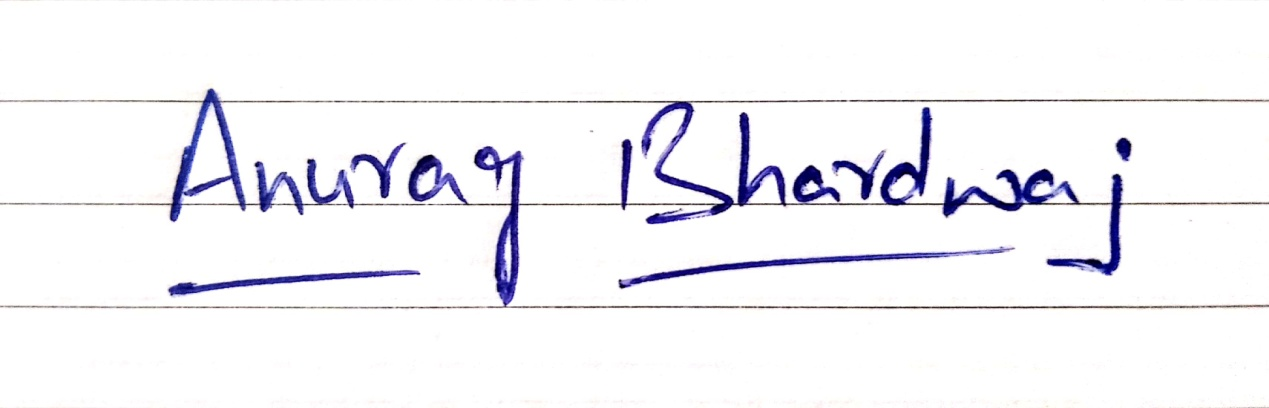 Anurag Bhardwaj